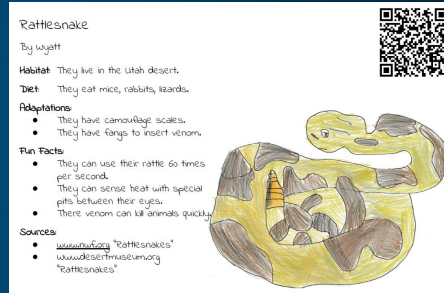 Rattlesnake
By Wyatt
Habitat: They live in the Utah desert.
Diet: They eat mice, rabbits, lizards.
Adaptations:
● They have camouflage scales.
● They have fangs to insert venom.
Fun Facts:
● They can use their rattle 60 times
per second.
● They can sense heat with special
pits between their eyes.
● There venom can kill animals quickly.
Sources:
● www.nwf.org "Rattlesnakes"
● www.desertmuseum.org
"Rattlesnakes"